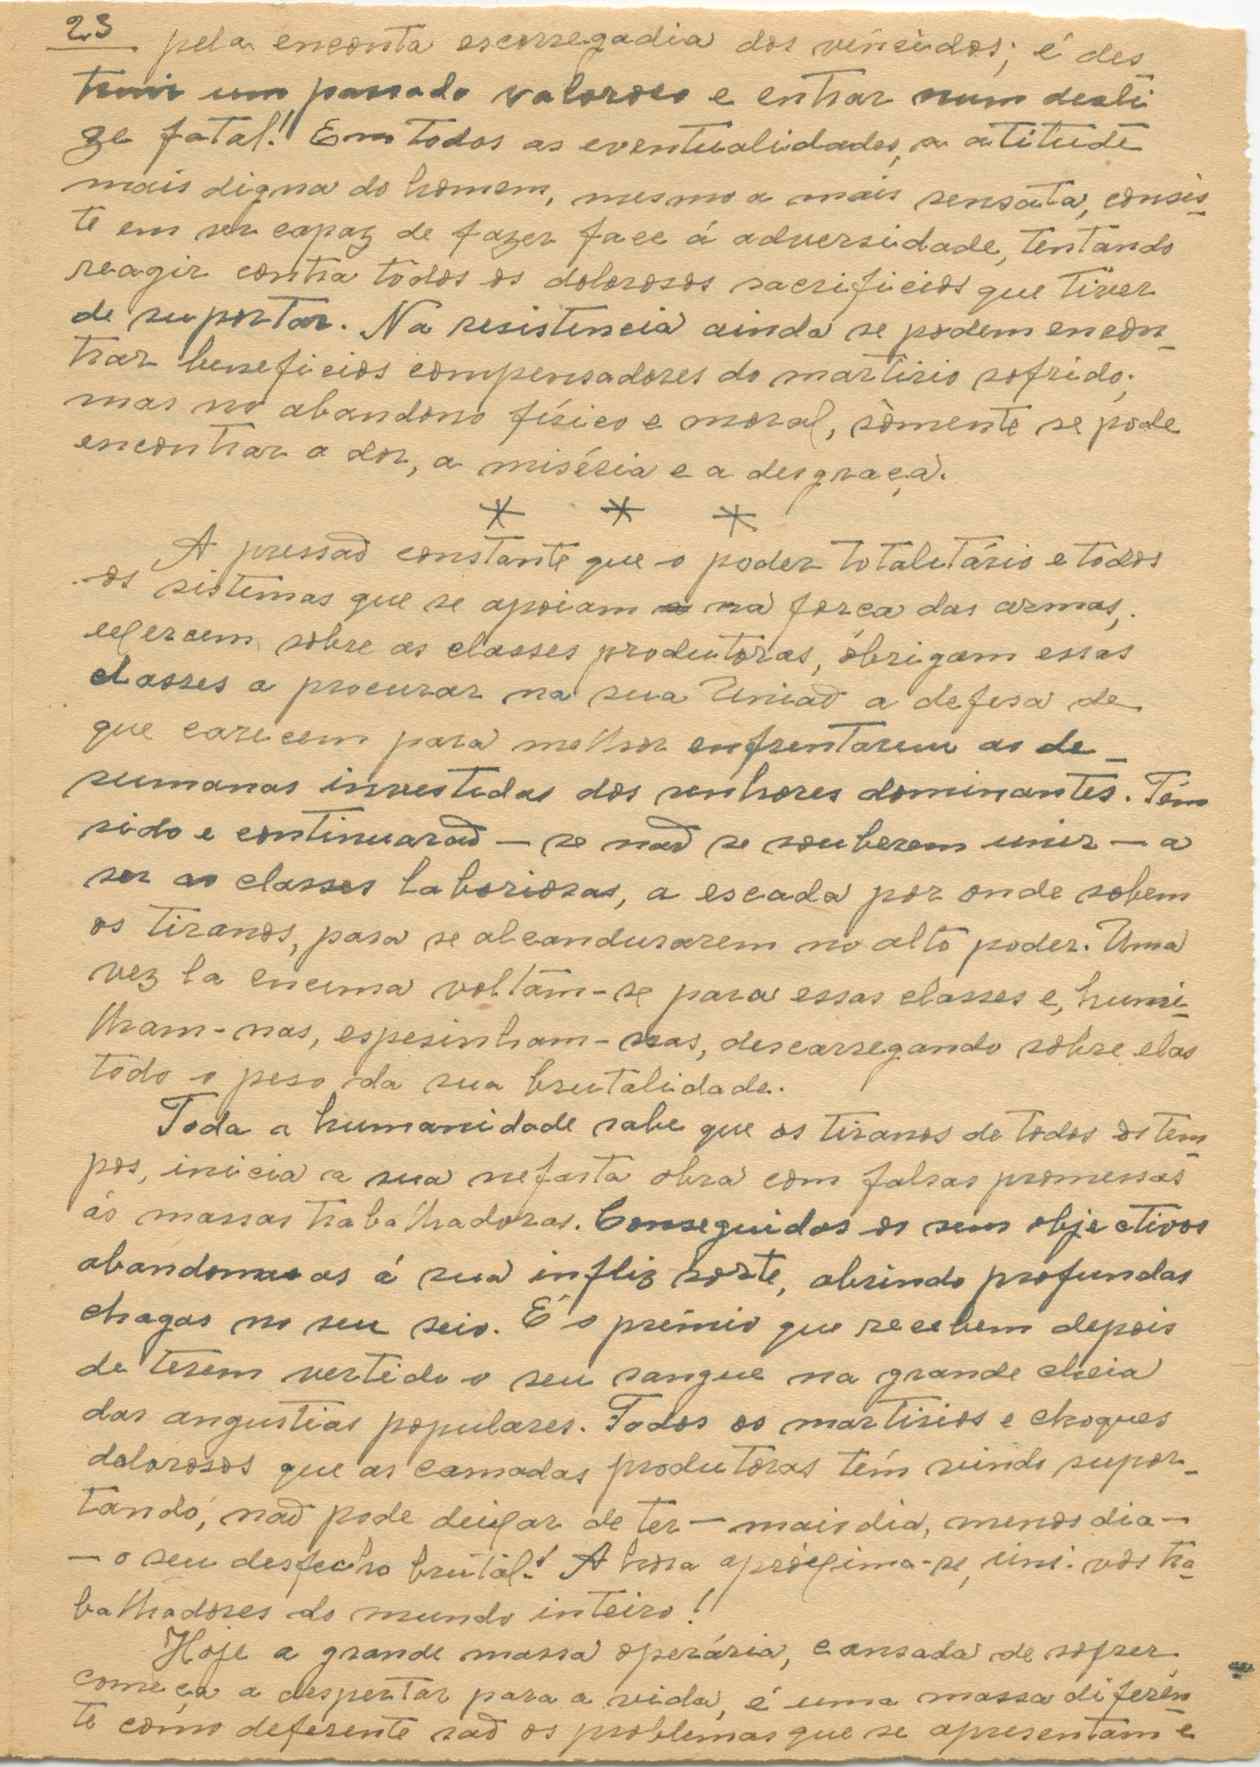 23
pela enconta escorregadia dos vencidos; é des
truir um passado valoroso e entrar num desli
ze fatal! Em todos as eventualidades, a atitude
mais digna do homem, mesmo a mais sensata, consis-
te em ser capaz de fazer face á adversidade, tentando
reagir contra tôdos os dolorosos sacrificios que tiver
de suportar. Na resistencia ainda se podem encon-
trar beneficios compensadores do martirio sofrido;
mas no abandono físico e moral, sòmente se pode
encontrar a dor, a miséria e a desgraça.
* * *
A pressaõ constante que o poder totalitário e todos
os sistemas que se apoiam na força das armas,
exercem sobre as classes produtoras, obrigam essas
classes a procurar na sua Uniaõ a defesa de
que carecem para melhor enfrentarem as de-
sumanas investidas dos senhores dominantes. Têm
sido e continuaraõ - se naõ se souberem unir - a
ser as classes laboriosas, a escada por onde sobem
os tiranos, para se alcandurarem no alto poder. Uma
vez la encima voltam-se para essas classes e, humi-
lham-nas, espesinham-nas, descarregando sobre elas
todo o peso da sua brutalidade.
Toda a humanidade sabe que os tiranos de todos os tem-
pos, inicia a sua nefasta obra com falsas promessas
ás massas trabalhadoras. Conseguidos os seus objectivos
abandonas as á sua infliz sorte, abrindo profundas
chagas no seu seio. É o prémio que recebem depois
de terem vertido o seu sangue na grande cheia
das angustias populares. Todos os martirios e choques
dolorosos que as camadas produtoras têm vindo supor-
tando, naõ pode deixar de ter - mais dia, menos dia -
- o seu desfecho brutal! A hora apróxima-se, uni-vos tra-
balhadores do mundo inteiro!
Hoje a grande massa operária, cansada de sofrer
começa a despertar para a vida, é uma massa diferen-
te como deferente saõ os problemas que se apresentam e